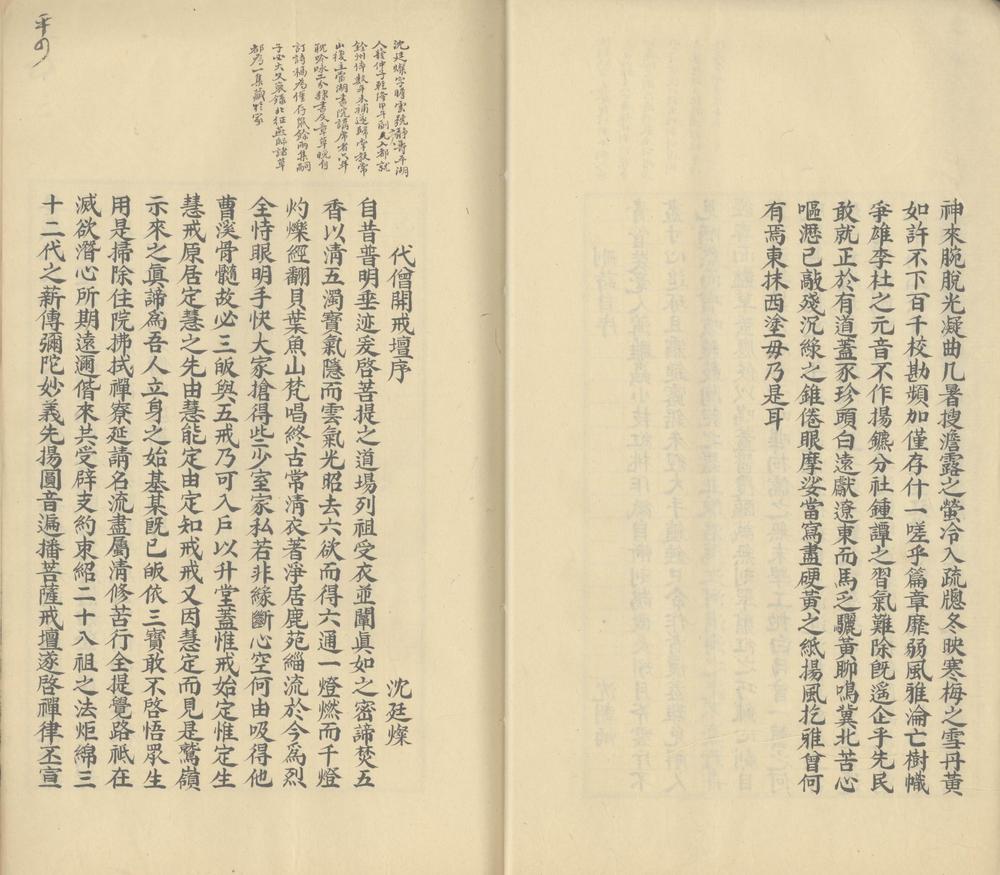 神來腕脫光凝曲几暑搜澹露之螢冷入疏牕冬映寒梅之雪丹黃
如許不下百千校勘頻加僅存什一嗟乎篇章靡弱風雅淪亡樹幟
爭雄李杜之元音不作揚鑣分社鍾譚之習氣難除旣遥企乎先民
敢就正於有道蓋豕珍頭白遠獻遼東而馬乏驪黃聊鳴冀北苦心
嘔瀝已敲殘沉綠之錐倦眼摩娑當寫盡硬黃之紙揚風扢雅曾何
有焉東抹西塗毋乃是耳
平
沈廷燦字時雲號靜濤平湖
人發仲子乾隆甲午副入都就
銓州倅數年未補遂歸掌教常
山後主當湖書院講席者六年
耽吟咏工分隸書及章草晚自
訂詩稿爲僅存集餘兩集嗣
子宏大又裒錄北征燕歸諸草
都爲一集藏於家
代僧開戒壇序
沈廷燦
自昔普明垂迹爰啓菩提之道場列祖受衣並闡眞如之密諦焚五
香以淸五濁寶氣隱而雲氣光昭去六欲而得六通一燈燃而千燈
灼爍經翻貝葉魚山梵唱終古常淸衣著淨居鹿苑緇流於今爲烈
全恃眼明手快大家搶得些少室家私若非緣斷心空何由吸得他
曹溪骨髓故必三皈與五戒乃可入戶以升堂蓋惟戒始定惟定生
慧戒原居定慧之先由慧能定由定知戒戒又因慧定而見是鷲嶺
示來之眞諦爲吾人立身之始基某旣已皈依三寶敢不啓悟眾生
用是掃除住院拂拭禪寮延請名流盡屬淸修苦行全提覺路祇在
滅欲潛心所期遠邇偕來共受辟支約束紹二十八祖之法炬綿三
十二代之薪傳彌陀妙義先揚圓音遍播菩薩戒壇遂啓禪律丕宣